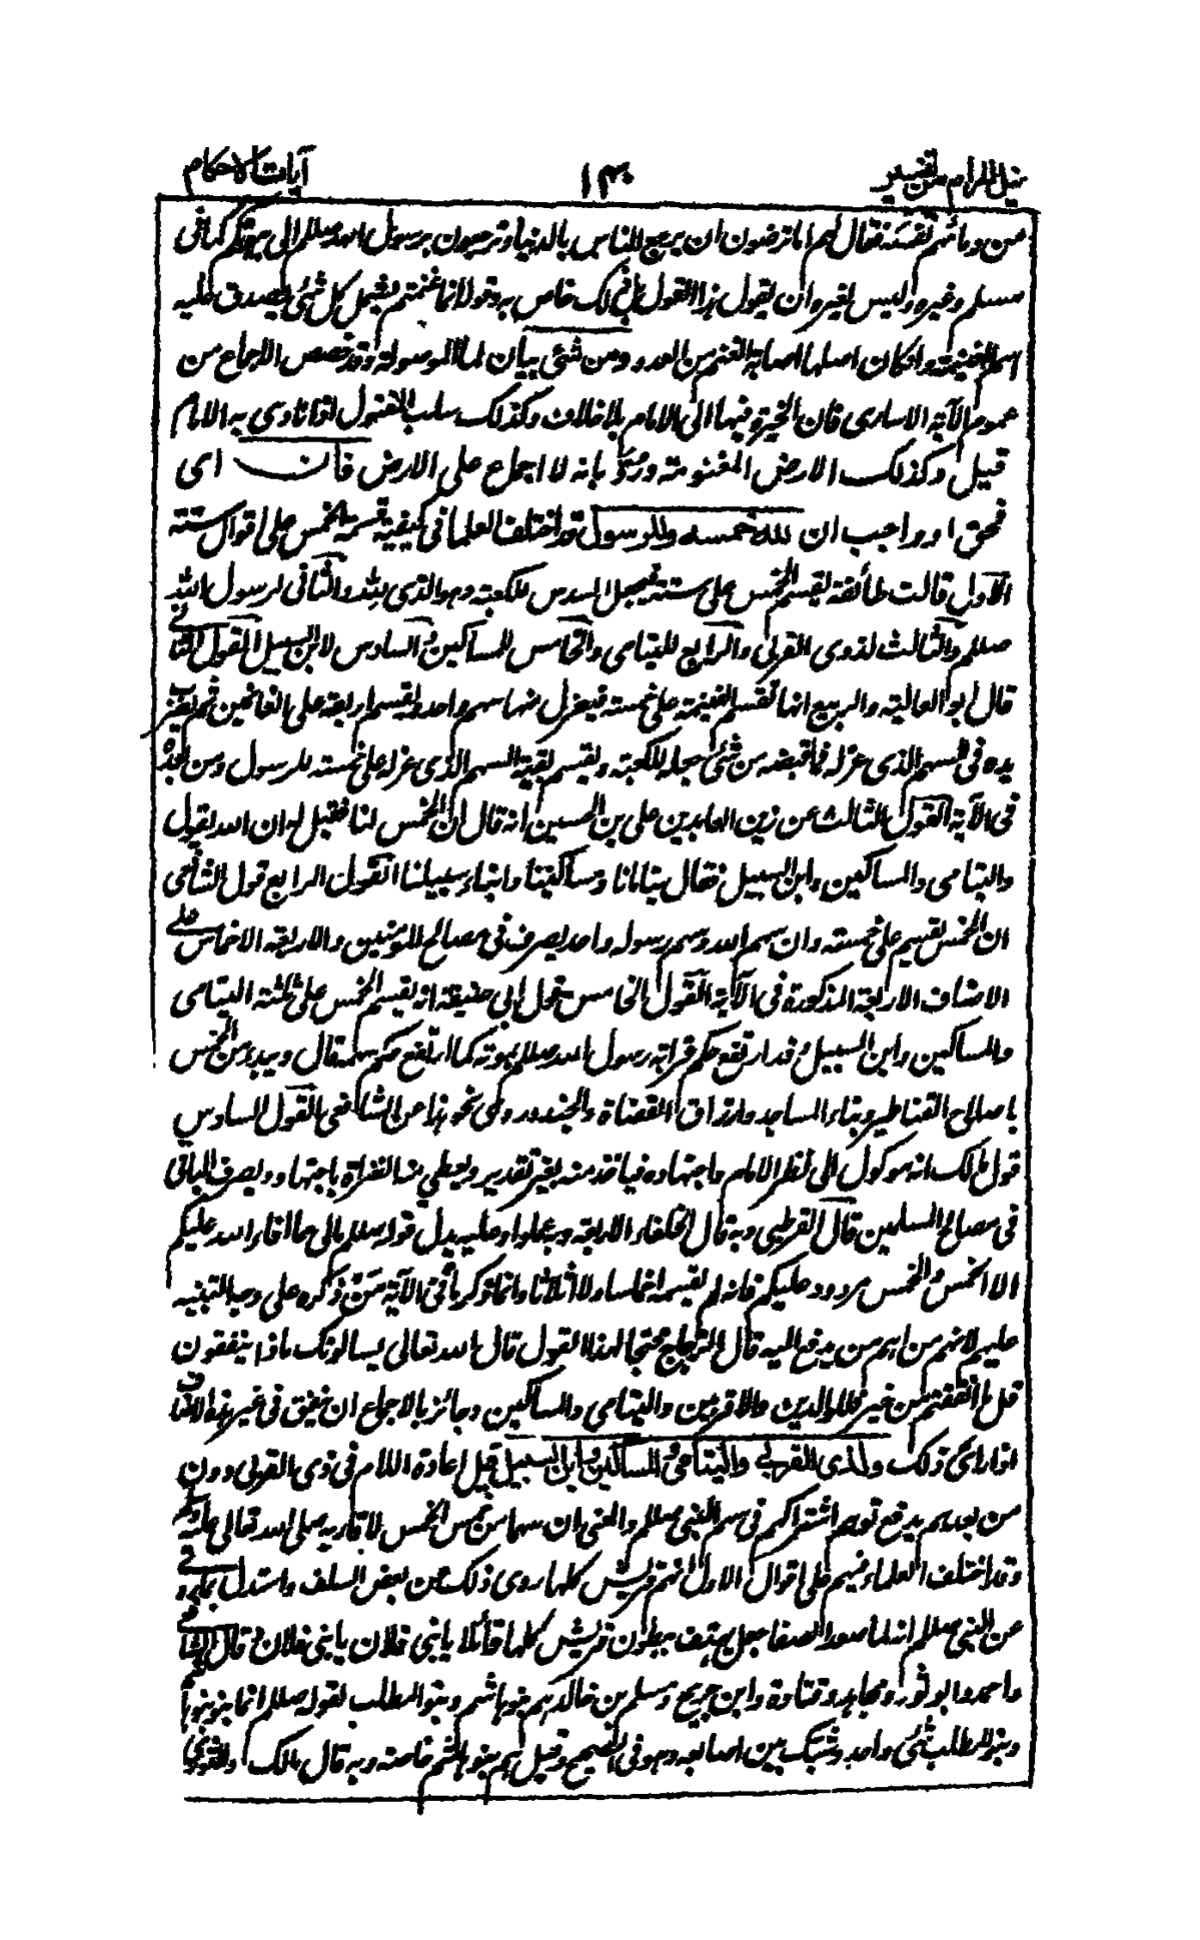 نيل المرام من تفسير ١٣٠ آيات الاحكام
من دمائهم نفسه فقال لهم اما ترضون ان يرجع الناس بالدنيا وترجعون برسول الله صللم الى بيوتكم كما في
مسلم وغيره وليس لغيره ان يقول هذا القول بل ذلك خاص به وقوله انما غنمتم يشمل كل شئ يصدق عليه
اسم الغنيمة وان كان اصلها اصابة الغنم من العدو ومن شئ بيان لما الموصولة وقد خصص الاجماع من
عموم الآية الاسارى فان الخيرة فيها الى الامام بلا خلاف وكذلك سلب المقتول اذا نادى به الامام
قيل وكذلك الارض المغنومة ورد بانه لا اجماع على الارض فان اى
فحق او واجب ان لله خمسه وللرسول قد اختلف العلما في كيفية قسمة الخمس على اقوال ستة
الاول قالت طائفة يقسم الخمس على ستة فيجعل السدس للكعبة وهو الذى لله والثانى لرسول الله
صللم والثالث لذوى القربى والرابع لليتامى والخامس للمساكين والسادس لابن السبيل القول الثانى
قال ابو العالية والربيع انها تقسم الغنيمة على خمسة فيعزل منها سهم واحد ويقسم اربعة على الغانمين ثم يضرب
يده فى السهم الذى عزله فما قبضه من شئ جعله للكعبة ويقسم بقية السهم الذى عزله على خمسة للرسول ومن بعده
فى الآية القول الثالث عن زين العابدين على بن الحسين انه قال ان الخمس لنا فقيل له ان الله يقول
واليتامى والمساكين وابن السبيل فقال يتامانا ومساكيننا وابناء سبيلنا القول الرابع قول الشافعى
ان الخمس يقسم على خمسة وان سهم الله وسهم رسوله واحد يصرف فى مصالح المؤمنين والاربعة الاخماس على
الاصناف الاربعة المذكورة فى الآية القول الخامس قول ابى حنيفة انه يقسم الخمس على ثلثة اليتامى
والمساكين وابن السبيل وقد ارتفع حكم قرابة رسول الله صللم بموته كما ارتفع حكم سهمه قال ويبدء من الخمس
باصلاح القناطير وبناء المساجد وارزاق القضاة والجند وروى نحو هذا عن الشافعى القول السادس
قول مالك انه موكول الى نظر الامام واجتهاده فياخذ منه بغير تقدير ويعطى منه القرابة باجتهاد ويصرف الباقى
فى مصالح المسلمين قال القرطبى وبه قال الخلفاء الاربعة وبه عملوا وعليه يدل قوله صللم مالى مما افاء الله عليكم
الا الخمس والخمس مردود عليكم فانه لم يقسمه اخماسا ولا اثلاثا وانما ذكر ما فى الآية من ذكره على وجه التنبيه
عليهم لانهم من اهم من يدفع اليه قال الزجاج محتجا لهذا القول قال الله تعالى يسالونك ماذا ينفقون
قل ما انفقتم من خير فللوالدين والاقربين واليتامى والمساكين وجائز بالاجماع ان ينفق فى غير هذه الاصناف
اذا راى ذلك ولذى القربى واليتامى والمساكين وابن السبيل قيل اعادة اللام فى ذى القربى دون
من بعدهم يدفع توهم اشتراكهم فى سهم النبى صللم والمعنى ان سهما من خمس الخمس لاقاربه صلى الله تعالى عليه وسلم
وقد اختلف العلماء فيهم على اقوال الاول انهم قريش كلها روى ذلك عن بعض السلف واستدل بما روى
عن النبى صللم انه لما صعد الصفا جعل يهتف ببطون قريش كلها قائلا يا بنى فلان يا بنى فلان وقال الشافعى
واحمد وابو ثور ومجاهد وقتادة وابن جريج ومسلم بن خالد هم بنو هاشم وبنو المطلب لقوله صللم انما بنو هاشم
وبنو المطلب شئ واحد وشبك بين اصابعه وهو فى الصحيح وقيل هم بنو هاشم خاصة وبه قال مالك والثورى